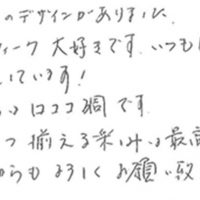 のデザインがありました。
ィーク 大好きです。いつも
しています!
はココ調です。
つ揃える楽しみは最高
からもよろしくお願い致